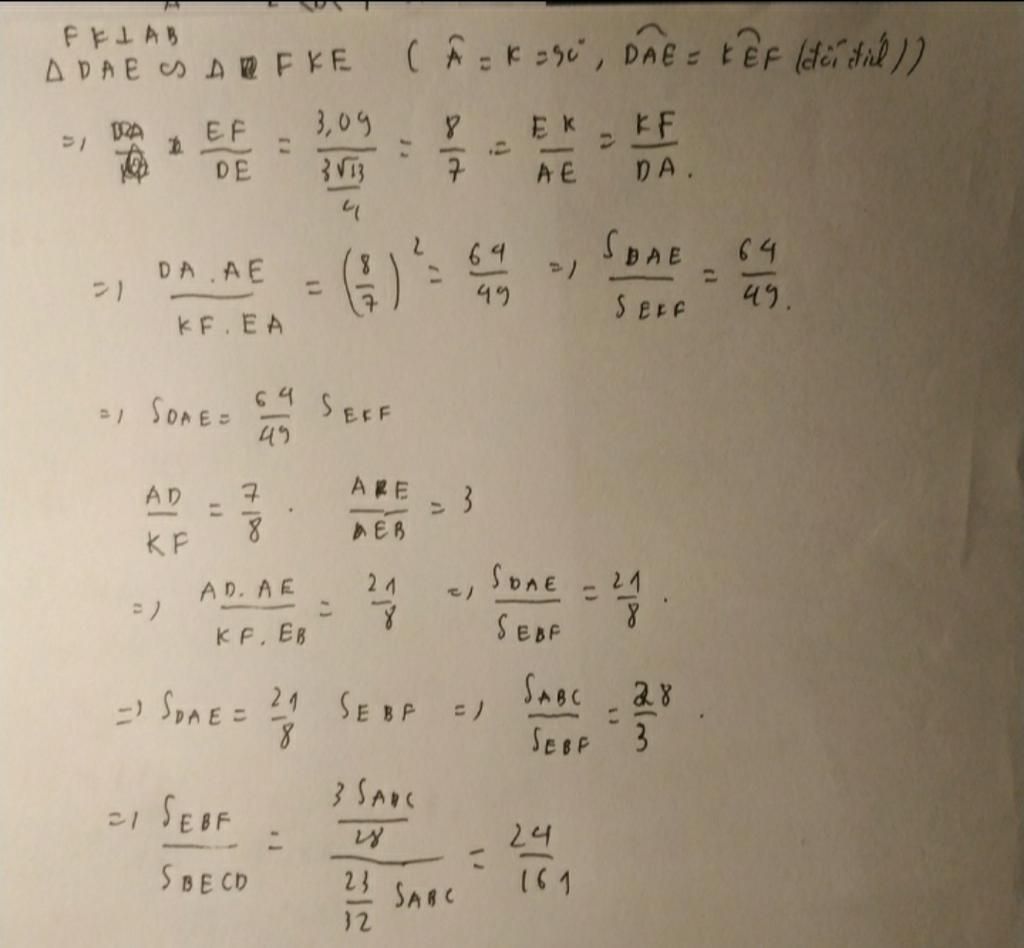 FK⊥AB
Δ DAE ∽ Δ FKE ( Â = K = 90°, DAE = KEF (đối đỉnh))
=) EF/DE = 3,09/(3√13/4) = 8/7 = EK/AE = KF/DA.
=) DA.AE/KF.EA = (8/7)² = 64/49 =) S DAE/S EKF = 64/49.
=) S DAE = 64/49 S EKF
AD/KF = 7/8 . AE/EB = 3
=) AD.AE/KF.EB = 21/8 =) S DAE/S EBF = 21/8 .
=) S DAE = 21/8 S EBF =) S ABC/S EBF = 28/3 .
=) S EBF/S BECD = (3 S ABC/28)/(23/32 S ABC) = 24/161